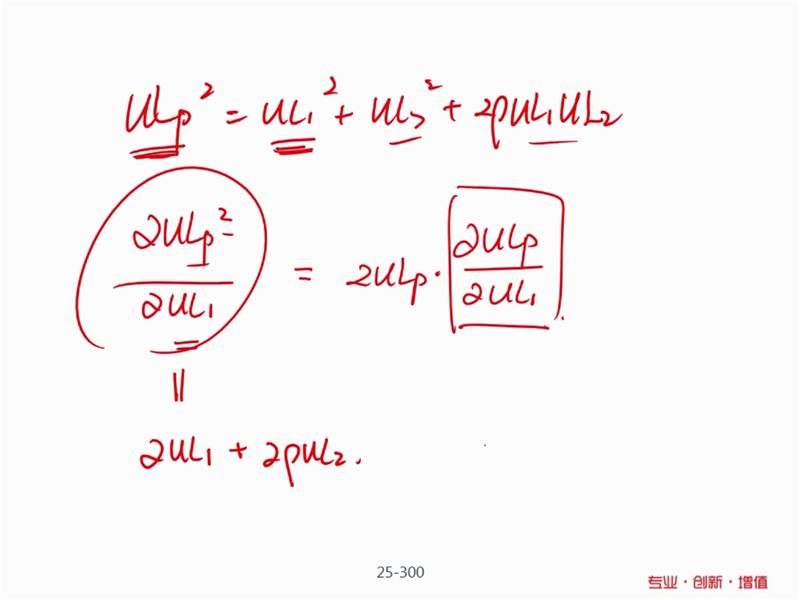 ULp² = UL₁² + UL₂² + 2ρUL₁UL₂
∂ULp² / ∂UL₁ = 2ULp · ∂ULp / ∂UL₁ .
॥
2UL₁ + 2ρUL₂ .
25-300
专业·创新·增值